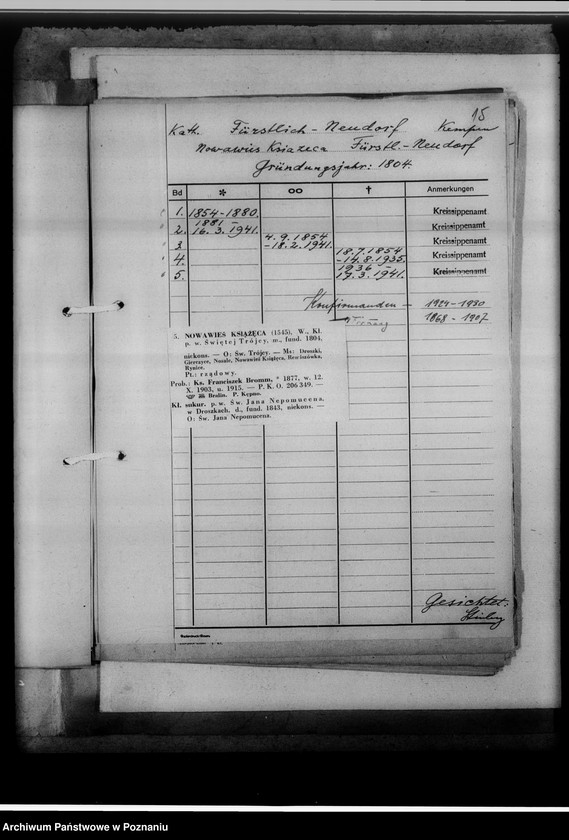 15
Kath. Fürstlich-Neudorf Kempen
Nowawies Książeca Fürstl.-Neudorf
Gründungsjahr: 1804.
Bd * oo † Anmerkungen
1. 1854-1880. Kreissippenamt
2. 1881 - 16.3.1941. Kreissippenamt
3. 4.9.1854 - 18.2.1941. Kreissippenamt
4. 18.7.1854 - 14.8.1935. Kreissippenamt
5. 1936 - 19.3.1941. Kreissippenamt
Konfirmanden - 1924-1930
1868 - 1907
5. NOWAWIEŚ KSIĄŻĘCA (1545). W., Kl.
p. w. Świętej Trójcy, m., fund. 1804,
niekons. — O: Św. Trójcy. — Ms: Droszki,
Gierczyce, Nosale, Nowawieś Książęca,
Rynice.
Pt.: rządowy.
Prob.: Ks. Franciszek Bromm, * 1877, w. 12.
X. 1903, u. 1915. — P. K. O. 206 349. —
Bralin. P. Kępno.
Kł. sukur. p. w. Św. Jana Nepomucena.
w Droszkach, d., fund. 1843, niekons. —
O: Św. Jana Nepomucena.
Gesichtet:
Archiwum Państwowe w Poznaniu